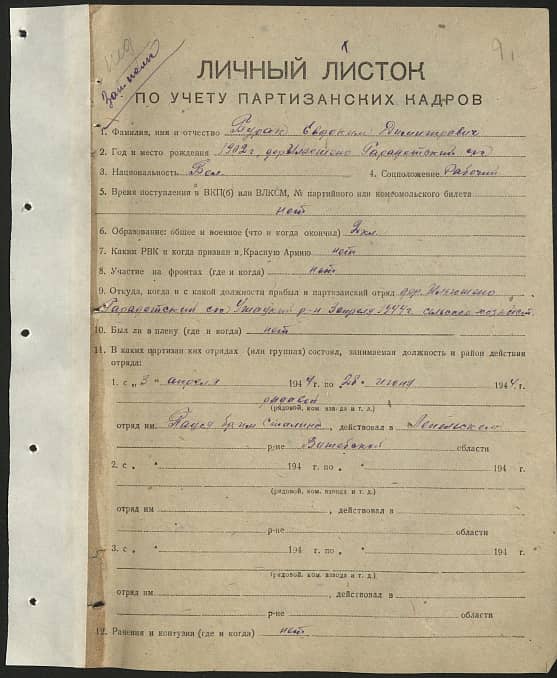 9.
ЛИЧНЫЙ ЛИСТОК
ПО УЧЕТУ ПАРТИЗАНСКИХ КАДРОВ
1. Фамилия, имя и отчество Евдоким Димитрович
2. Год и место рождения 1902 г дер.
3. Национальность Бел. 4. Соцположение Рабочий
5. Время поступления в ВКП(б) или ВЛКСМ, № партийного или комсомольского билета
нет
6. Образование: общее и военное (что и когда окончил) 2 кл.
7. Каким РВК и когда призван в Красную Армию нет
8. Участие на фронтах (где и когда) нет
9. Откуда, когда и с какой должности прибыл в партизанский отряд дер.
Ушацкий р-н 3 апреля 1944 г.
10. Был ли в плену (где и когда) нет
11. В каких партизанских отрядах (или группах) состоял, занимаемая должность и район действия
отряда:
1. с „3 " апреля 1944 г. по „28 " июня 1944 г.
рядовой
(рядовой, ком. взвода и т. д.)
отряд им. бр им Сталина, действовал в Лепельском
р-не Витебской области
2. с „ " 194 г. по „ " 194 г.
(рядовой, ком. взвода и т. д.)
отряд им. , действовал в
р-не области
3. с „ " 194 г. по „ " 194 г.
(рядовой, ком. взвода и т. д.)
отряд им. , действовал в
р-не области
12. Ранения и контузии (где и когда) нет